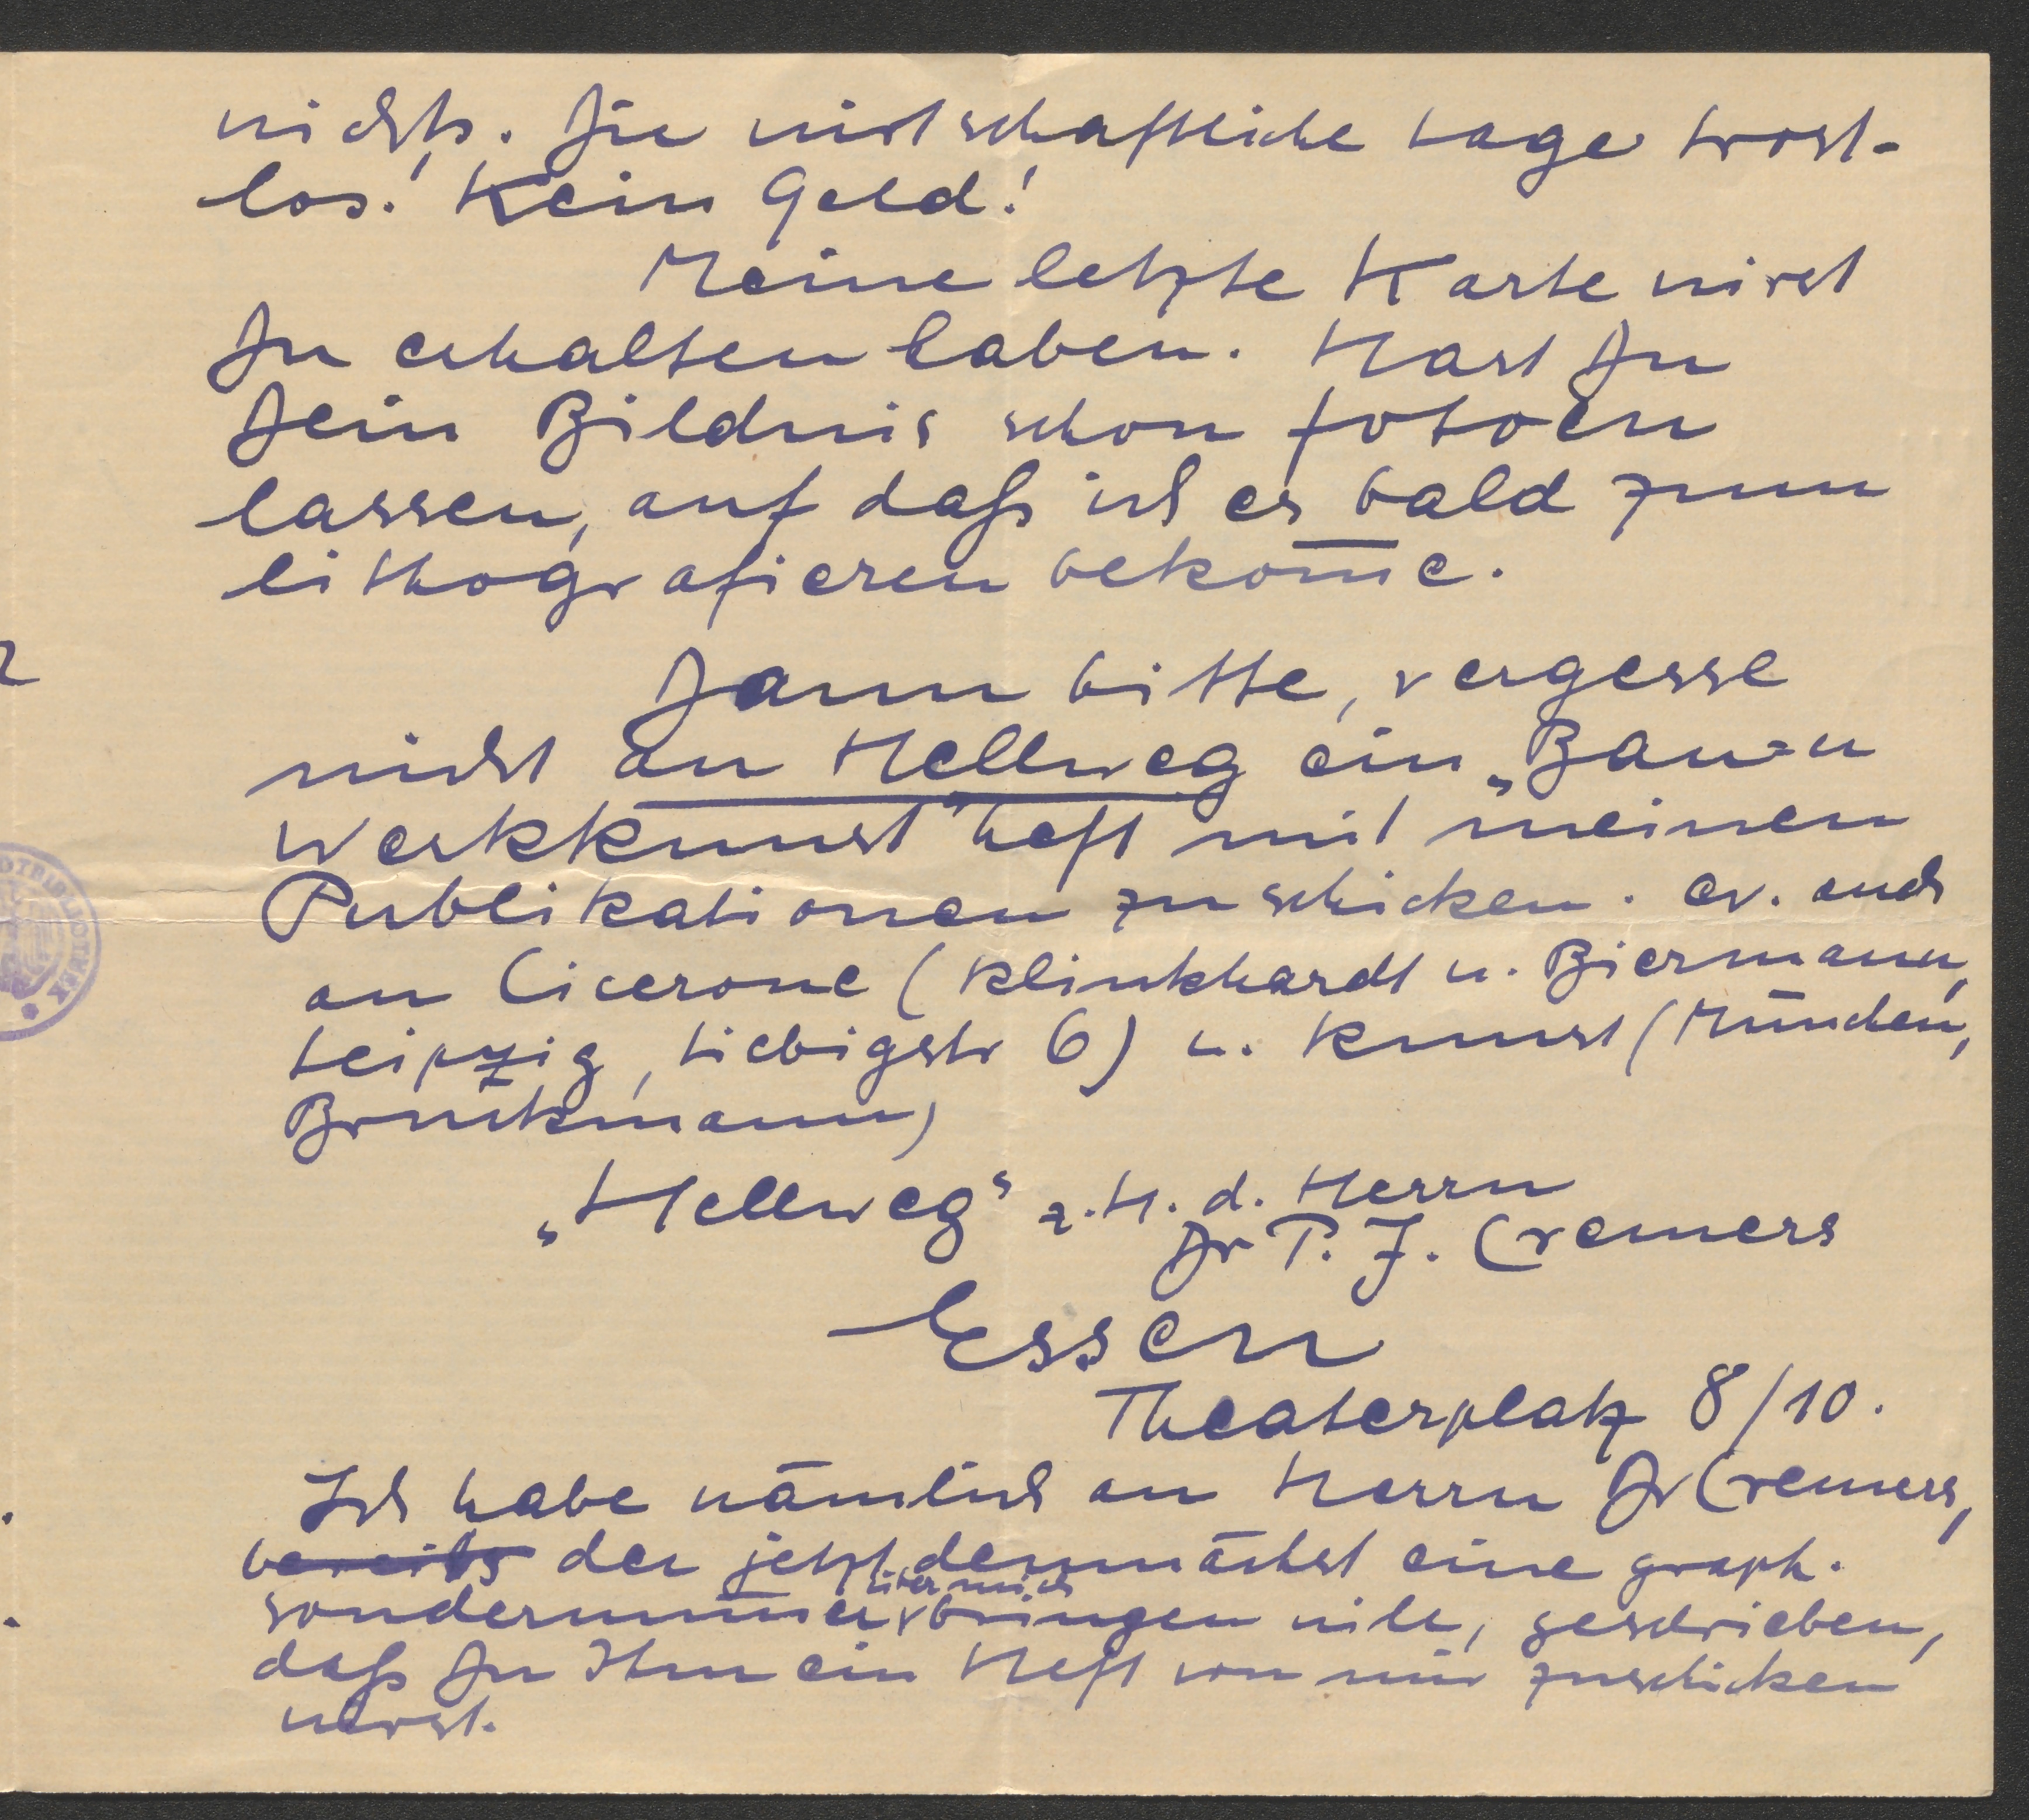 nichts. Die wirtschaftliche Lage trost-
los! Kein Geld!
Meine letzte Karte wirst
Du erhalten haben. Hast Du
Dein Bildnis schon fotoen
lassen, auf daß ich es bald zum
lithografieren bekom̅e.
Dann bitte, vergesse
nicht an Hellweg ein „Bau=u
Werkkunst" heft mit meinen
Publikationen zu schicken. ev. auch
an Cicerone (Klinkhardt u. Biermann,
Leipzig, Liebigstr 6) u. Kunst (München,
Bruckmann)
„Hellweg" z. H. d. Herrn
Dr P. J. Cremers
Essen
Theaterplatz 8/10.
Ich habe nämlich an Herrn Dr Cremers,
bereits der jetzt demnächst eine graph.
über mich
sondernum̅er bringen will, geschrieben,
daß Du Ihm ein Heft von mir zuschicken
wirst.